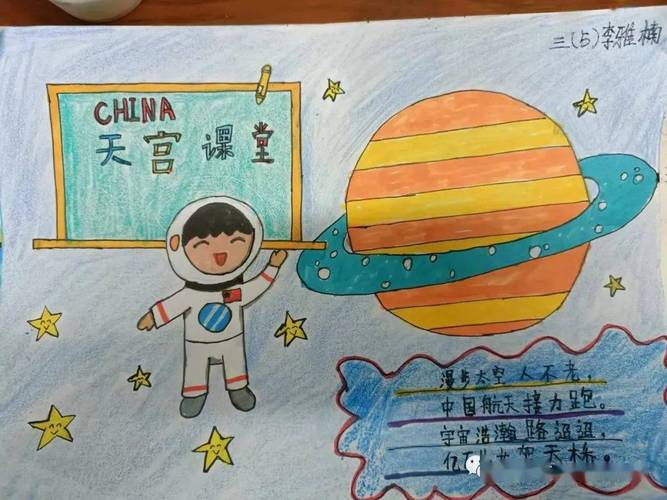 三(5)李雅楠
CHINA
天宫课堂
漫步太空人不老,
中国航天接力跑。
宇宙浩瀚路迢迢,
亿 天桥。